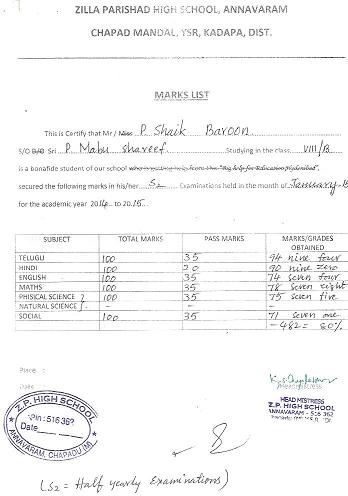 ZILLA PARISHAD HIGH SCHOOL, ANNAVARAM
CHAPAD MANDAL, YSR, KADAPA, DIST.
MARKS LIST
This is Certify that Mr / Miss P Shaik Baroon
S/O D/O Sri P. Mabu Shareef. Studying in the class VIII/B
is a bonafide student of our school who is getting help from the "Big help for Education
secured the following marks in his/her S2 Examinations held in the month of January-15
for the academic year 2014 to 2015.
SUBJECT TOTAL MARKS PASS MARKS MARKS/GRADES OBTAINED
TELUGU 100 35 94 nine four
HINDI 100 20 90 nine zero
ENGLISH 100 35 74 seven four
MATHS 100 35 78 seven eight
PHISICAL SCIENCE } 100 35 75 seven five
NATURAL SCIENCE } - - -
SOCIAL 100 35 71 seven one
- 482 = 80%
Place :
Date
Z.P. HIGH SCHOOL
Pin: 516 362
Date
ANNAVARAM, CHAPADU (M)
Headmistress
HEADMISTRESS
Z.P. HIGH SCHOOL
ANNAVARAM - 516 362
(S2 = Half yearly Examinations)